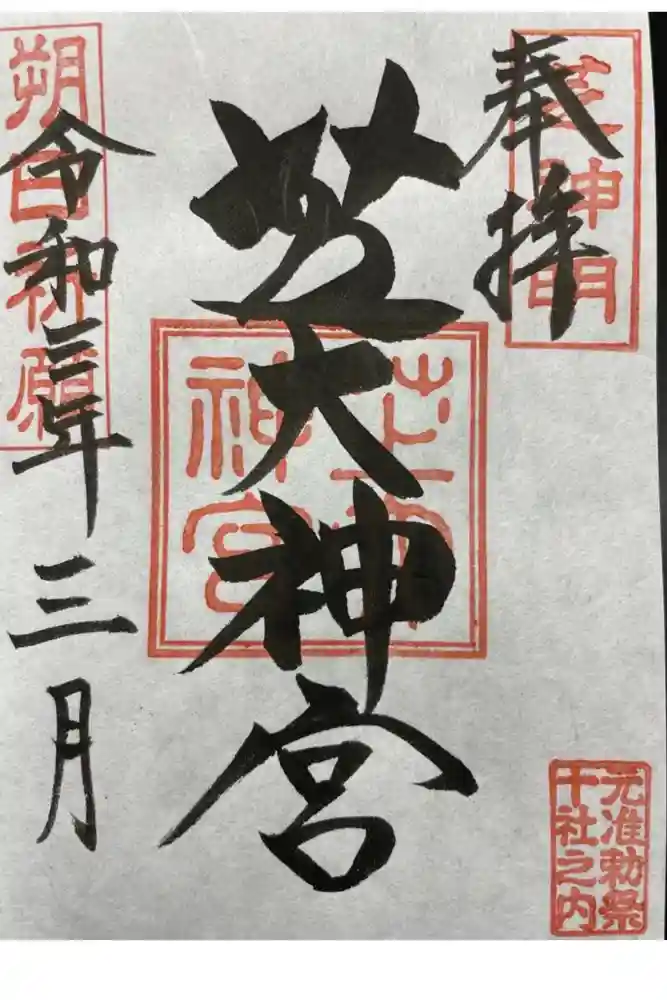 奉拝
芝神明
芝大神宮
芝大
神宮
元准勅祭
十社之内
令和三年三月
朔日祈願